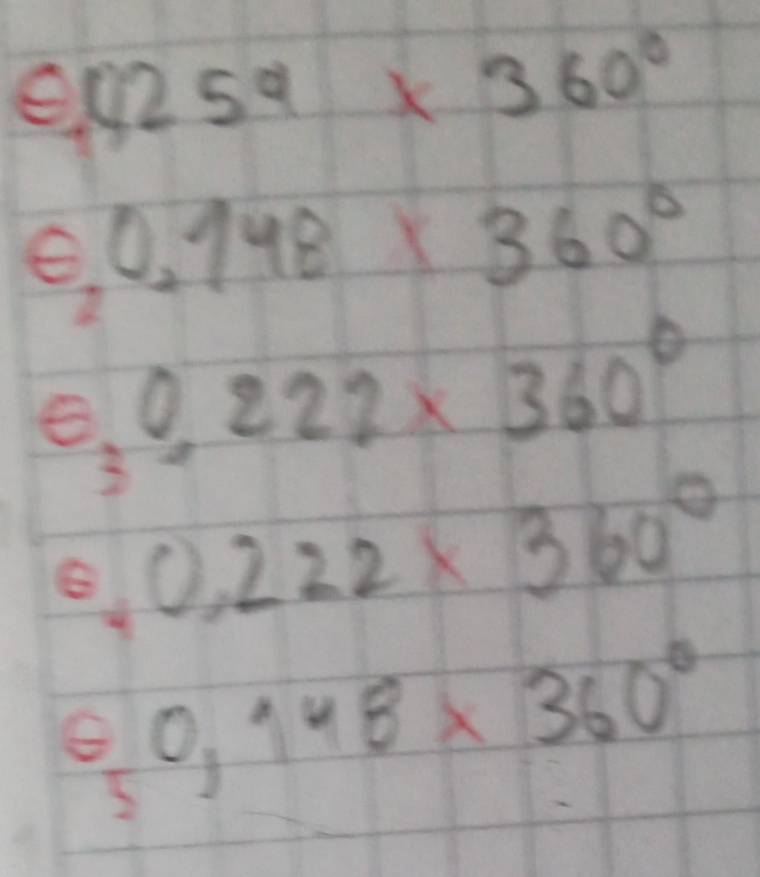 θ₁ 0,259 x 360°
θ₂ 0,148 x 360°
θ₃ 0,222 x 360°
θ₄ 0,222 x 360°
θ₅ 0,148 x 360°